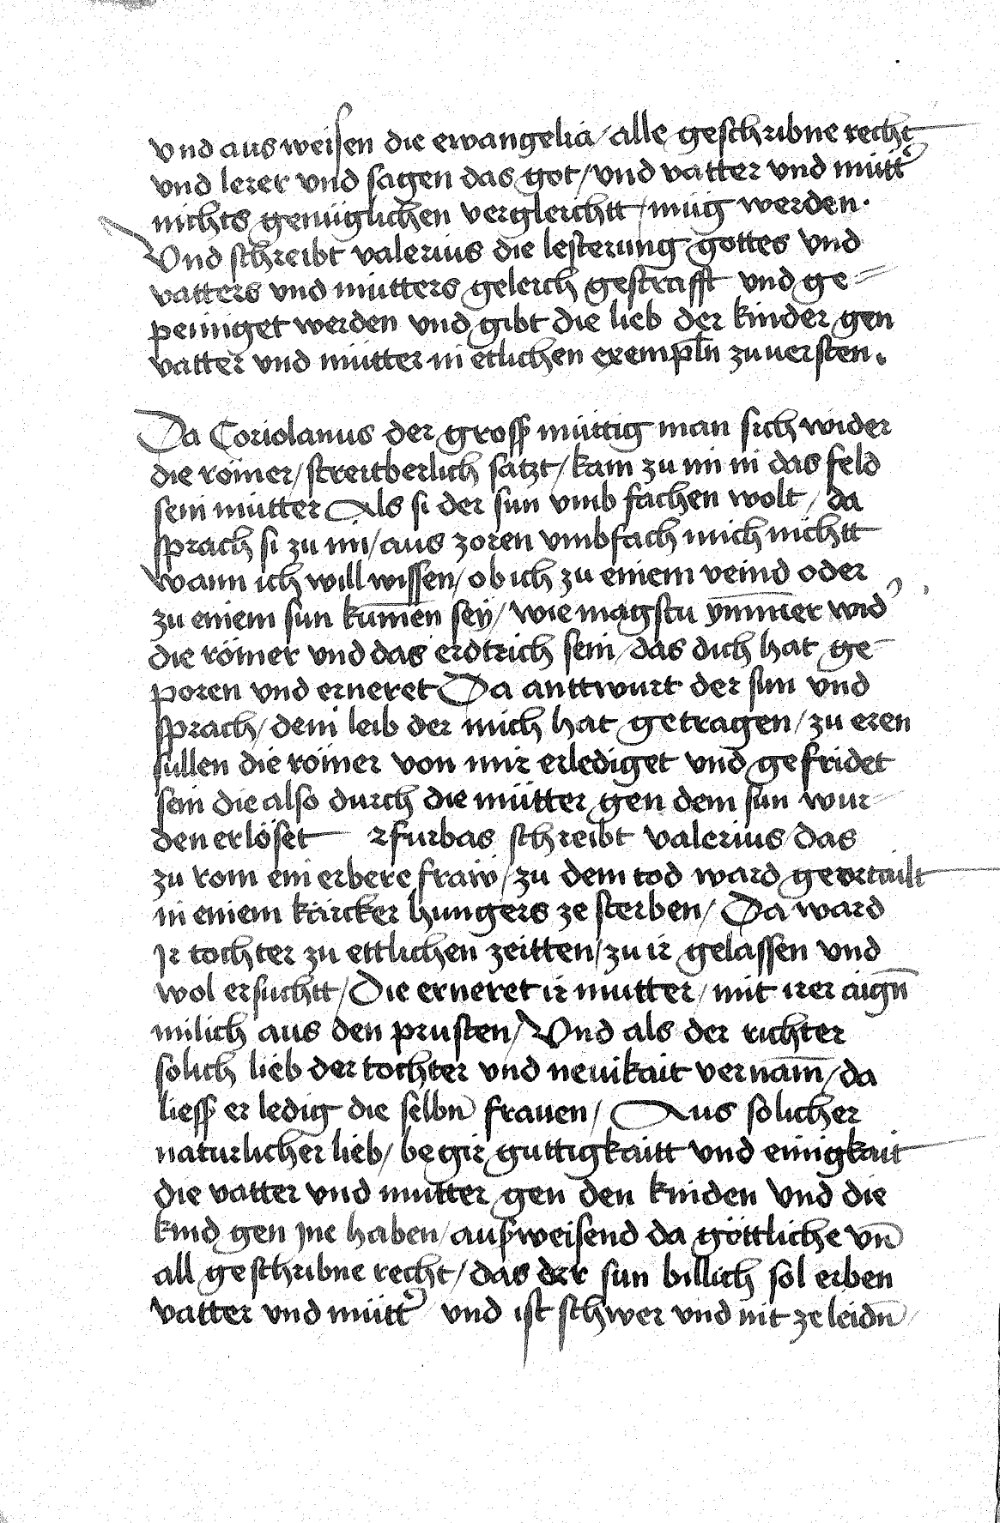 vnd aus weisen die ewangelia / alle geschribne recht
vnd lerer vnd sagen das got / vnd vatter vnd mütt
nichts genüglichen vergleichtt / müg werden ·
Vnd schreibt valerius die lesterung gottes vnd
vatters vnd mütters geleich gestrafft vnd ge=
peiniget werden vnd gibt die lieb der kinder gen
vatter vnd mütter in etlichen exempln zu uersten .
Da Coriolanus der grossz müttig man sich wider
die römer / streitberlich satzt / kam zu im in das feld
sein mütter Als si der sun vmb fachen wolt / da
sprach si zu im / aus zoren vmbfach mich nichtt
wann ich will wissen / ob ich zu einem veind oder
zu einem sun kumen sey / wie magstu ymmer wid
die römer vnd das erdtrich sein / das dich hat ge=
poren vnd erneret Da anttwurt der sun vnd
sprach / dem leib der mich hat getragen / zu eren
sullen die römer von mir erlediget vnd gefridet
sein die also durch die mütter gen dem sun wur=
den erlöset furbas schreibt valerius / das
zu rom ein erbere fraw / zu dem tod ward geortailt
in einem kärcker hungers ze sterben / Da ward
Ir tochter zu ettlichen zeitten / zu ir gelassen vnd
wol ersuchtt / Die erneret ir mutter / mit irer aign
milich aus den prusten / Vnd als der richter
solich lieb der tochter vnd neuikait vernam / da
liessz er ledig die selbn frauen / Aus solicher
naturlicher lieb / begir guttigkaitt vnd einigkait
die vatter vnd mutter gen den kinden vnd die
kind gen Ine haben / ausweisend da göttliche vn
all geschribne recht / das der sun billich sol erben
vatter vnd mütt vnd ist schwer vnd nit ze leidn /